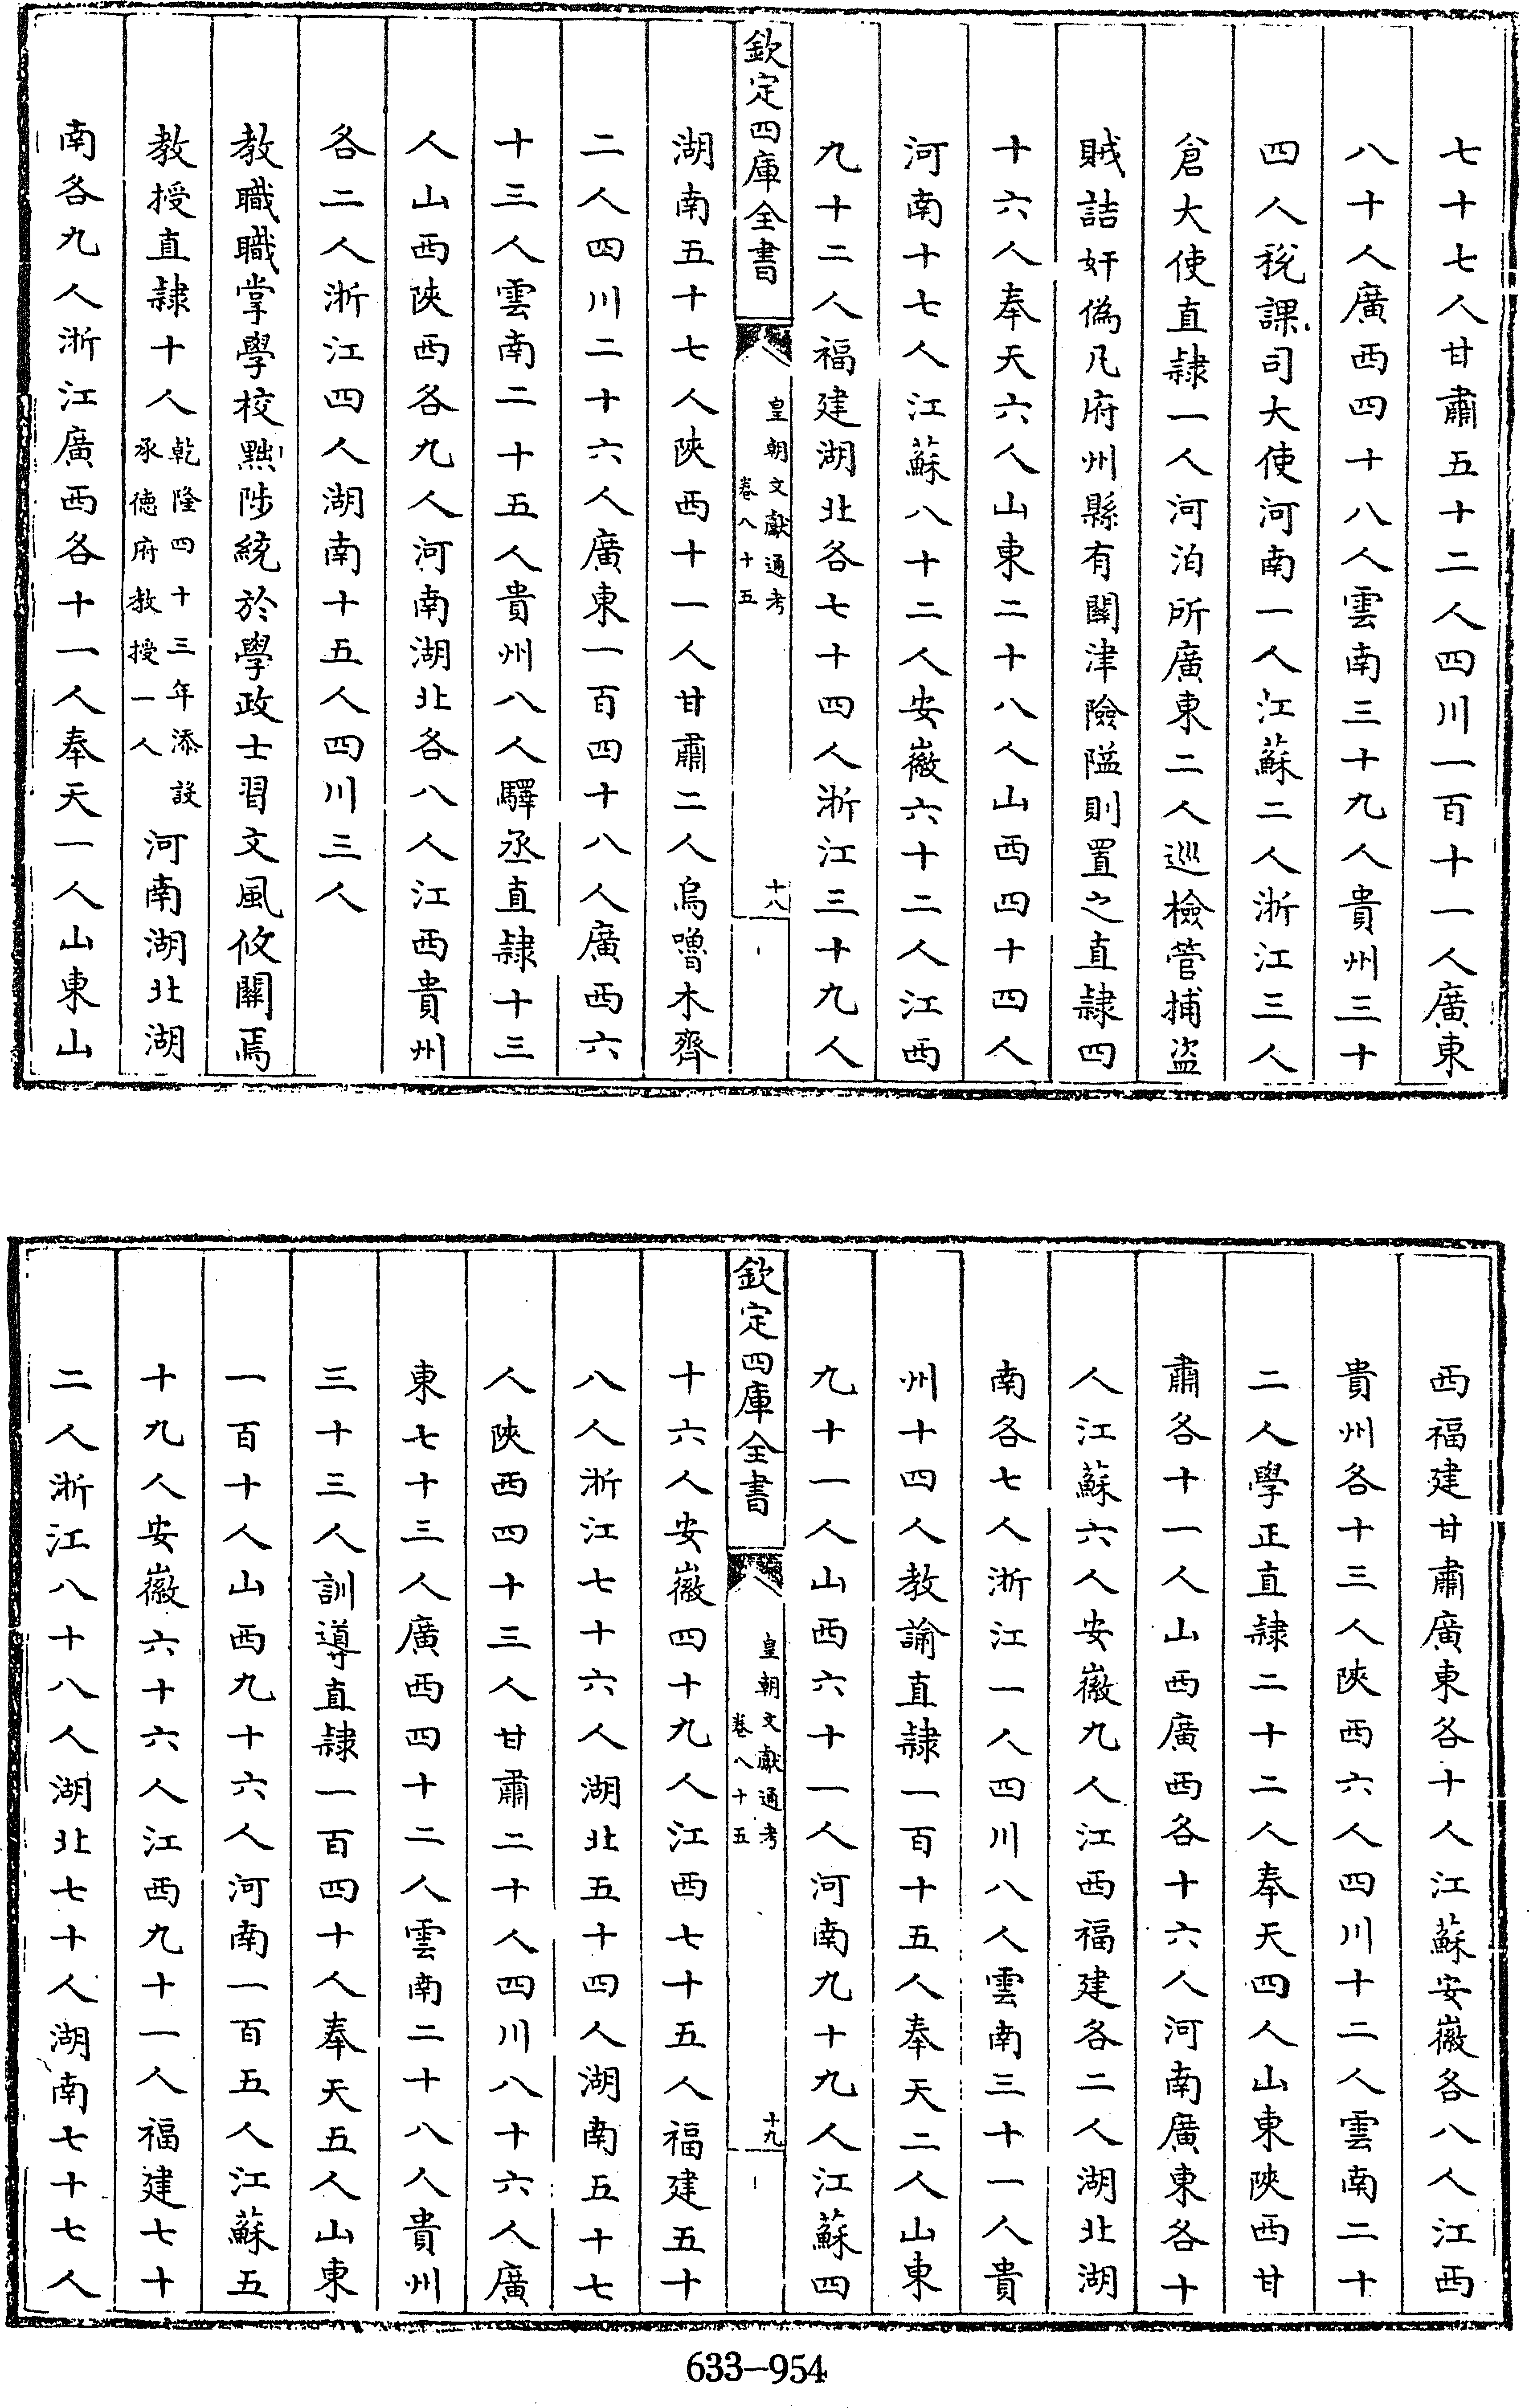 七十七人甘肅五十二人四川一百十一人廣東
八十人廣西四十八人雲南三十九人貴州三十
四人稅課司大使河南一人江蘇二人浙江三人
倉大使直隸一人河泊所廣東二人巡檢管捕盜
賊詰奸偽凡府州縣有關津險隘則置之直隸四
十六人奉天六人山東二十八人山西四十四人
河南十七人江蘇八十二人安徽六十二人江西
九十二人福建湖北各七十四人浙江三十九人
欽定四庫全書
皇朝文獻通考
卷八十五
十八
湖南五十七人陝西十一人甘肅二人烏嚕木齊
二人四川二十六人廣東一百四十八人廣西六
十三人雲南二十五人貴州八人驛丞直隸十三
人山西陝西各九人河南湖北各八人江西貴州
各二人浙江四人湖南十五人四川三人
教職職掌學校黜陟統於學政士習文風攸關焉
教授直隸十人乾隆四十三年添設承德府教授一人河南湖北湖
南各九人浙江廣西各十一人奉天一人山東山
西福建甘肅廣東各十人江蘇安徽各八人江西
貴州各十三人陝西六人四川十二人雲南二十
二人學正直隸二十二人奉天四人山東陝西甘
肅各十一人山西廣西各十六人河南廣東各十
人江蘇六人安徽九人江西福建各二人湖北湖
南各七人浙江一人四川八人雲南三十一人貴
州十四人教諭直隸一百十五人奉天二人山東
九十一人山西六十一人河南九十九人江蘇四
欽定四庫全書
皇朝文獻通考
卷八十五
十九
十六人安徽四十九人江西七十五人福建五十
八人浙江七十六人湖北五十四人湖南五十七
人陝西四十三人甘肅二十人四川八十六人廣
東七十三人廣西四十二人雲南二十八人貴州
三十三人訓導直隸一百四十人奉天五人山東
一百十人山西九十六人河南一百五人江蘇五
十九人安徽六十六人江西九十一人福建七十
二人浙江八十八人湖北七十人湖南七十七人
633-954